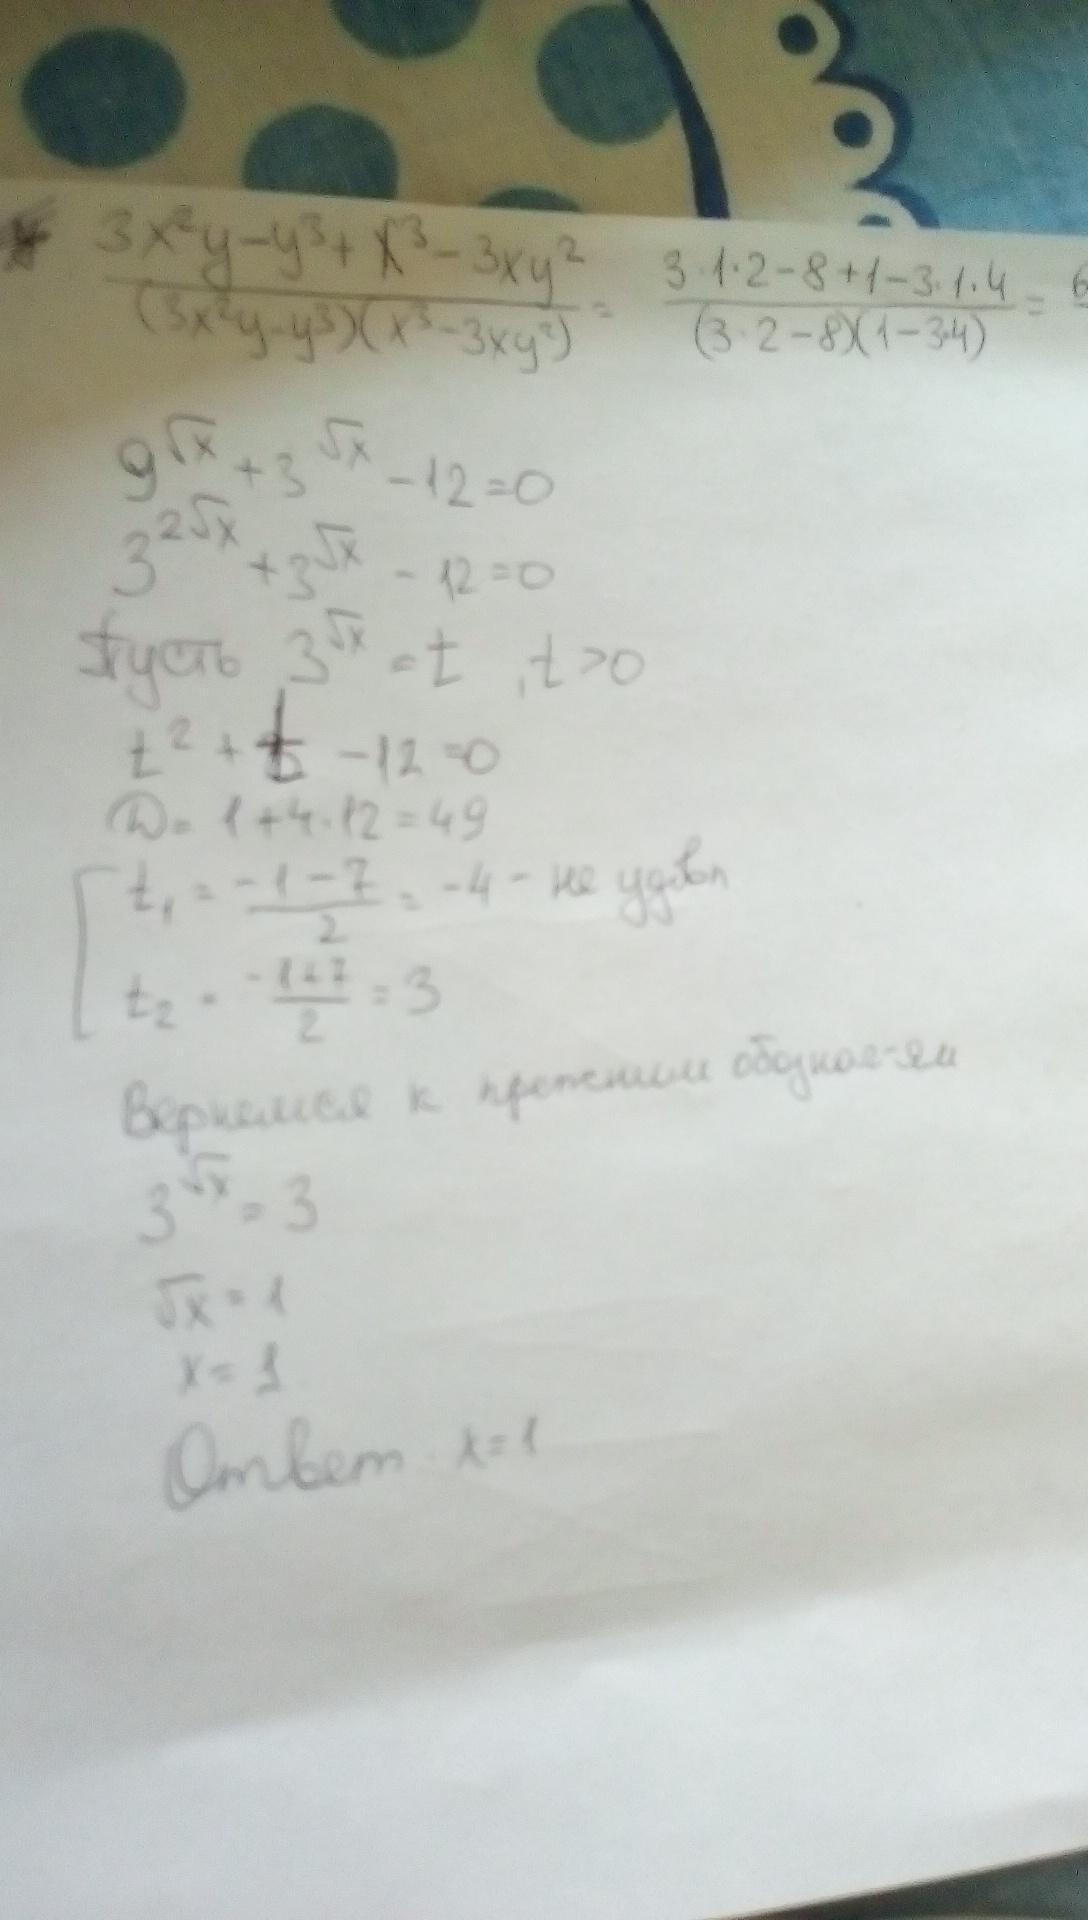 3x²y-y³+x³-3xy² / (3x²y-y³)(x³-3xy²) = 3·1·2-8+1-3·1·4 / (3·2-8)(1-3·4) = 6
9^√x + 3^√x - 12=0
3^2√x + 3^√x - 12=0
Пусть 3^√x = t, t>0
t² + t - 12=0
D= 1+4·12=49
t₁ = -1-7 / 2 = -4 - не удовл
t₂ = -1+7 / 2 = 3
Вернемся к прежним обознач-ям
3^√x = 3
√x = 1
x = 1
Ответ x=1